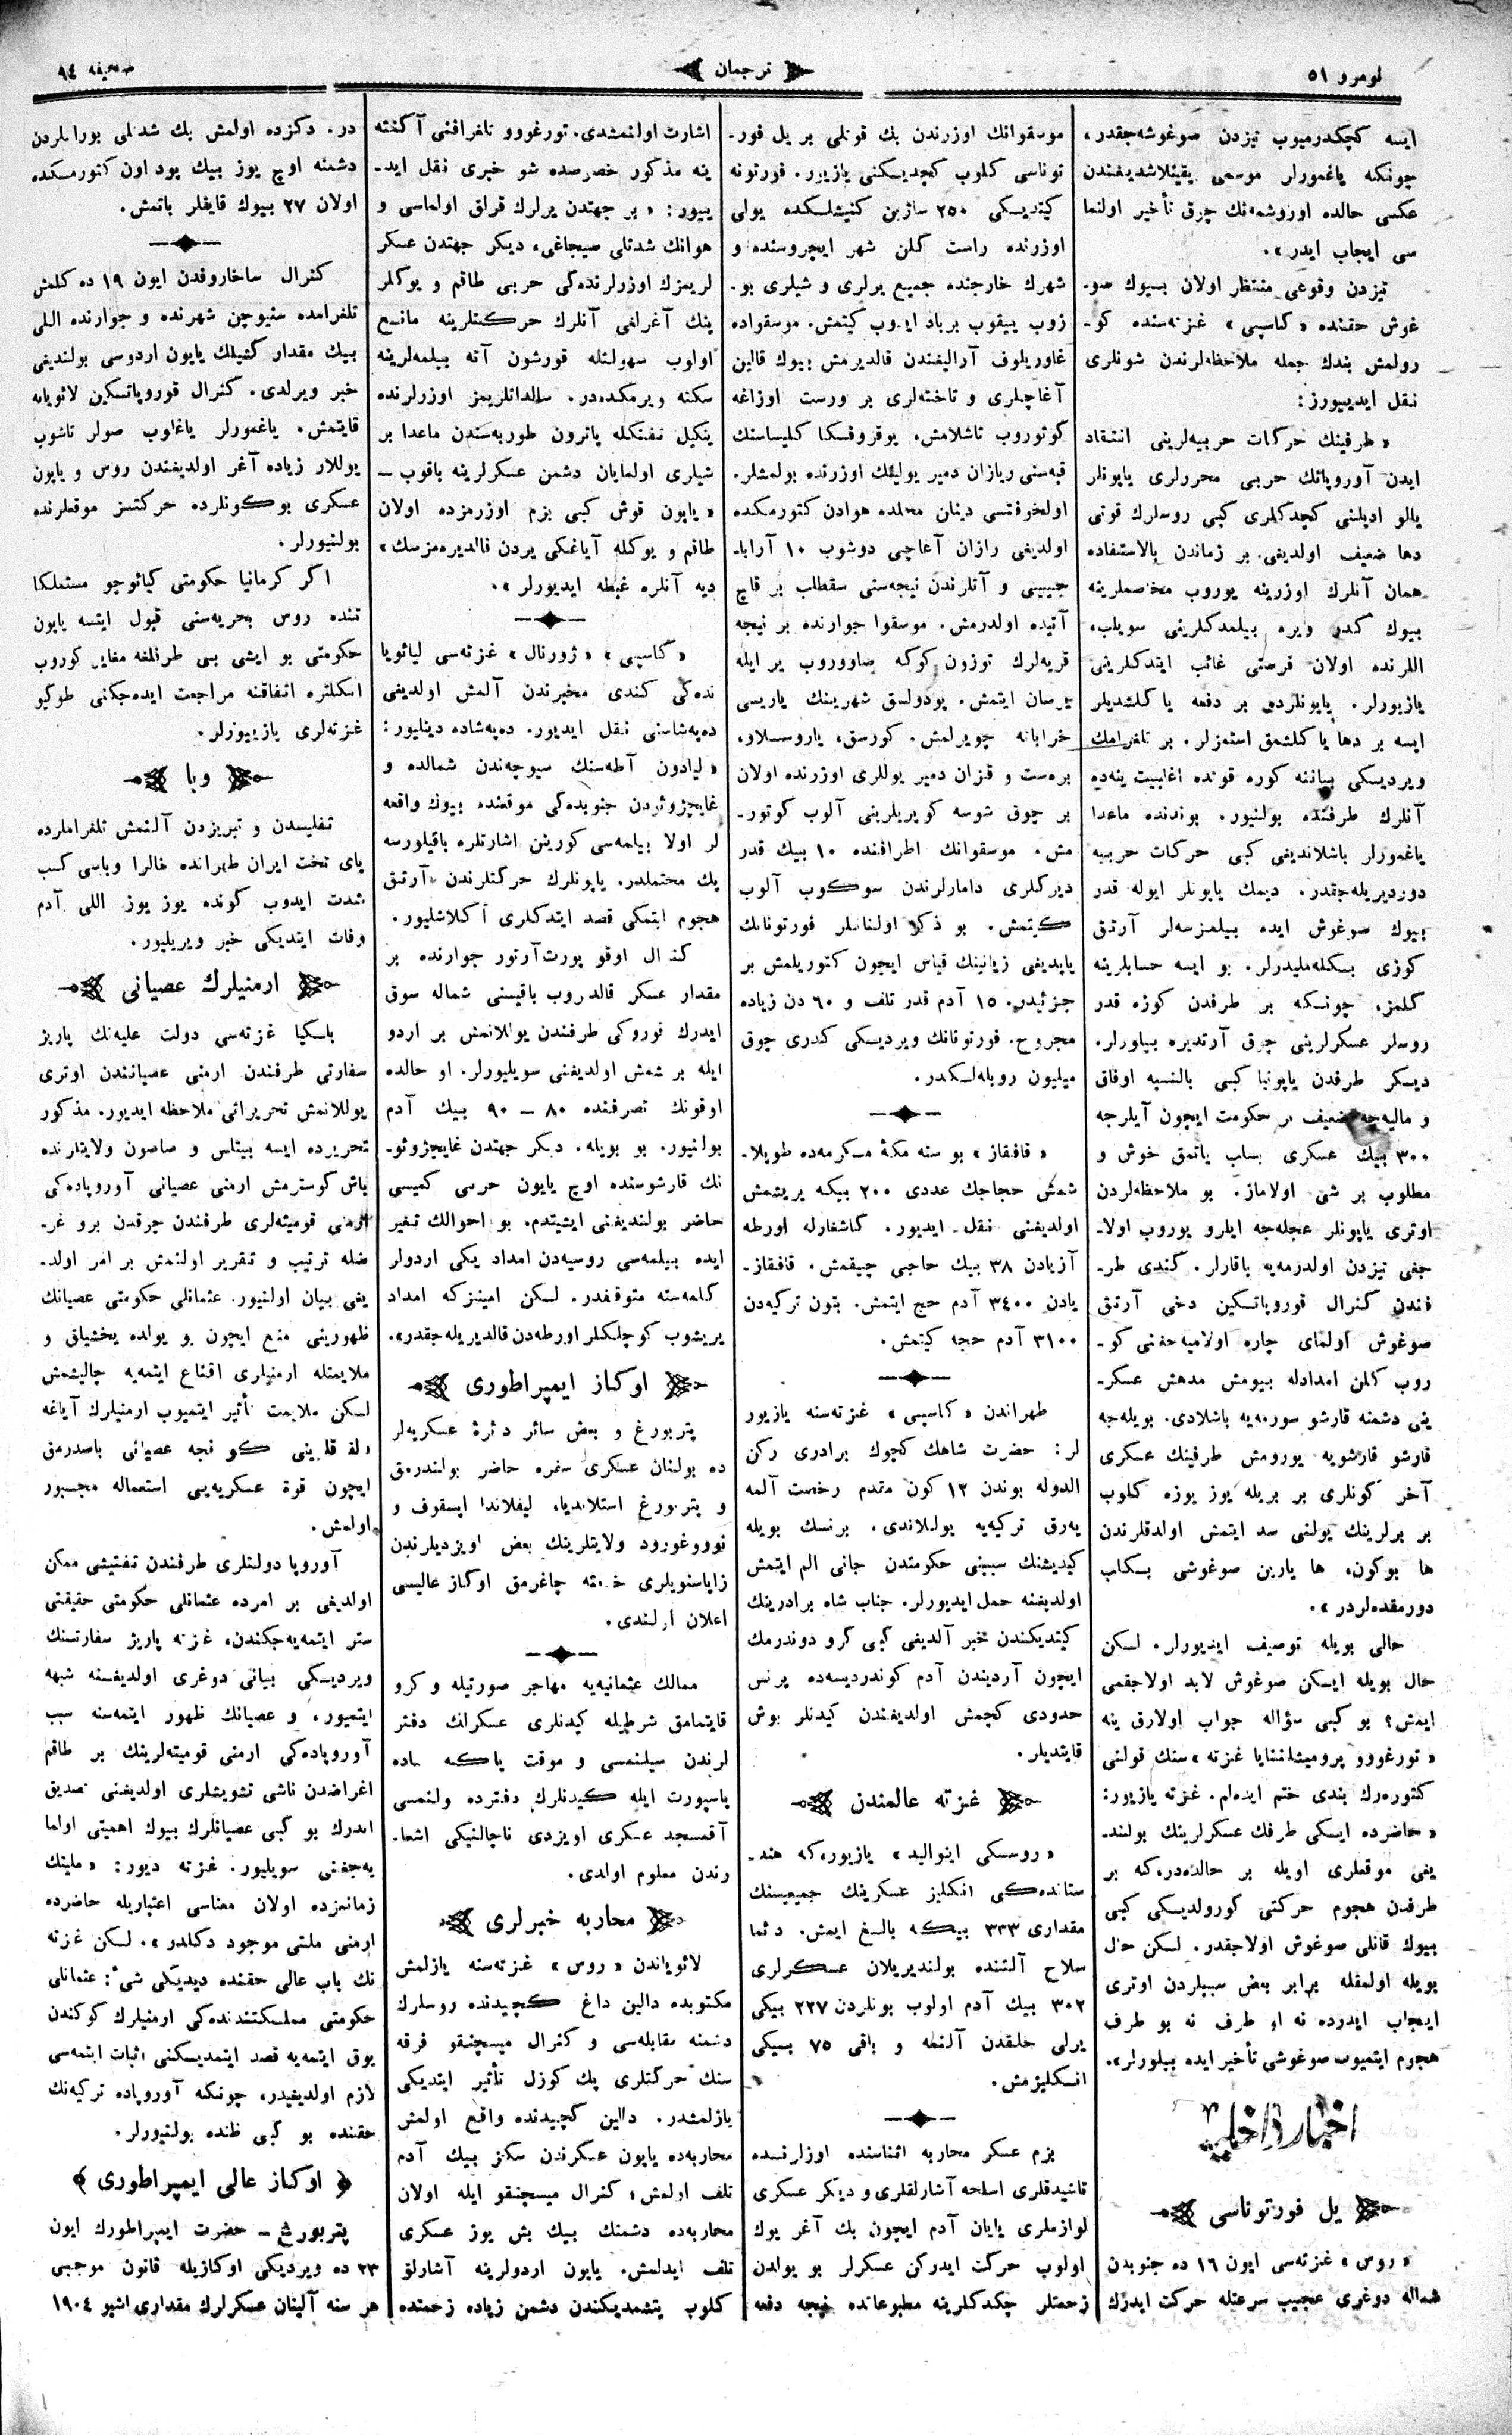 نومرو ٥١
ترجمان
صحیفه ٩٤
ایسه کچکدرمیوب تیزدن صوغوشه‌جقدر،
چونکه یاغمورلر موسمی یقینلاشدیغندن
عکسی حالده اوروشمه‌نك چوق تأخیر اولنما
سی ایجاب ایدر».
تیزدن وقوعی منتظر اولان بییوك صو-
غوش حقنده «کاسپی» غزته‌سنده کو-
رولمش بندك جمله ملاحظه‌لرندن شونلری
نقل ایدییورز:
«طرفینك حرکات حربیه‌لرینی انتقاد
ایدن آوروپانك حربی محررلری یاپونلر
یالو ادیلنی کچدکلری کبی روسلرك قوتی
دها ضعیف اولدیغی بر زماندن بالاستفاده
همان آنلرك اوزرینه یوروب مخاصملرینه
بییوك کدر ویره بیلمدکلرینی سویلب،
اللرنده اولان فرصتی غائب ایتدکلرینی
یازیورلر. یاپونلرده بر دفعه یاکلشدیلر
ایسه بر دها یاکلشمق استمزلر. بر تلغرامك
ویردیکی بیاننه کوره قوتده اغلبیت ینه‌ده
آنلرك طرفنده بولنیور. بوندنده ماعدا
یاغمورلر باشلاندیغی کبی حرکات حربیه
دوردیریله‌جقدر. دیمك یاپونلر ایوله قدر
بییوك صوغوش ایده بیلمزسه‌لر آرتق
کوزی بکله‌ملیدرلر. بو ایسه حسابلرینه
کلمز، چونکه بر طرفدن کوزه قدر
روسلر عسکرلرینی چوق آرتدیره بیلورلر.
دیکر طرفدن یاپونیا کبی بالنسبه اوفاق
و مالیه‌جه ضعیف بر حکومت ایچون آیلرجه
٣٠٠ بیك عسکری بساب یاتمق خوش و
مطلوب بر شی اولاماز. بو ملاحظه‌لردن
اوتری یاپونلر عجله‌جه ایلرو یوروب اولا-
جغی تیزدن اولدرمه‌یه باقارلر. کندی طر-
فندن کنرال قوروپاتکین دخی آرتق
صوغوش اولمای چاره اولامیه‌جغنی کو-
روب کلن امدادله بیومش مدهش عسکر-
ینی دشمنه قارشو سورمه‌یه باشلادی. بویله‌جه
قارشو قارشویه یورومش طرفینك عسکری
آخر کونلری بر بریله یوز یوزه کلوب
بر برلرینك یولنی سد ایتمش اولدقلرندن
ها بوکون، ها یارین صوغوشی بکلب
دورمقده‌لردر».
حالی بویله توصیف ایدیورلر. لکن
حال بویله ایکن صوغوش لابد اولاجقمی
ایمش؟ بو کبی سؤاله جواب اولارق ینه
«تورغووو پرومیشلننایا غزته»سنك قولنی
کتوره‌رك بندی ختم ایده‌لم. غزته یازیور:
«حاضرده ایکی طرفك عسکرلرینك بولند-
یغی موقعلری اویله بر حالده‌در،که بر
طرفدن هجوم حرکتی کورولدیکی کبی
بییوك قانلی صوغوش اولاجقدر. لکن حال
بویله اولمقله برابر بعض سببلردن اوتری
ایجاب ایدرده نه او طرف نه بو طرف
هجوم ایتمیوب صوغوشی تأخیر ایده بیلورلر».
اخبار داخلیه
یل فورتوناسی
«روس» غزته‌سی ایون ١٦ ده جنوبدن
شماله دوغری عجیب سرعتله حرکت ایدرك
موسقوانك اوزرندن بك قوتلی بر یل فور-
توناسی کلوب کچدیکنی یازیور. فورتونه
کیتدیکی ٢٥٠ ساژین کنیشلکده یولی
اوزرنده راست کلن شهر ایچروسنده و
شهرك خارجنده جمیع یرلری و شیلری بو-
زوب ییقوب برباد ایدوب کیتمش. موسقواده
غاوریلوف آرالیغندن قالدیرمش بییوك قالین
آغاچلری و تاخته‌لری بر ورست اوزاغه
کوتوروب تاشلامش، پوقروفسکا کلیساسنك
قبه‌سنی ریازان دمیر یولینك اوزرنده بولمشلر.
اولخوفتسی دینان محلده هوادن کتورمکده
اولدیغی رازان آغاچی دوشوب ١٠ آرابا-
جییی و آتلرندن نیجه‌سنی سقطلب بر قاچ
آتیده اولدرمش. موسقوا جوارنده بر نیجه
قریه‌لرك توزون کوکه صاووروب یر ایله
یرسان ایتمش. پودولسق شهرینك یاریسی
خرابانه چویرلمش. کورسق، یاروسلاو،
بره‌ست و قزان دمیر یوللری اوزرنده اولان
بر چوق شوسه کوپریلرینی آلوب کوتور-
مش. موسقوانك اطرافنده ١٠ بیك قدر
دیرکلری دامارلرندن سوکوب آلوب
کیتمش. بو ذکر اولنانلر فورتونانك
یاپدیغی زیانینك قیاس ایچون کتوریلمش بر
جزئیدر. ١٥ آدم قدر تلف و ٦٠ دن زیاده
مجروح. فورتونانك ویردیکی کدری چوق
میلیون روبله‌لکدر.
«قافقاز» بو سنه مکۀ مکرمه‌ده طوپلا-
شمش حجاجك عددی ٢٠٠ بیکه یریشمش
اولدیغنی نقل ایدیور. کاشغارله اورطه
آزیادن ٣٨ بیك حاجی چیقمش. قافقاز-
یادن ٣٤٠٠ آدم حج ایتمش. بتون ترکیه‌دن
٣١٠٠ آدم حجه کیتمش.
طهراندن «کاسپی» غزته‌سنه یازیور
لر: حضرت شاهك کچوك برادری رکن
الدوله بوندن ١٢ کون مقدم رخصت آلمه
یه‌رق ترکیه‌یه یوللاندی. برنسك بویله
کیدیشنك سببنی حکومتدن جانی الم ایتمش
اولدیغنه حمل ایدیورلر. جناب شاه برادرینك
کیتدیکندن خبر آلدیغی کبی کرو دوندرمك
ایچون آردیندن آدم کوندردیسه‌ده پرنس
حدودی کچمش اولدیغندن کیدنلر بوش
قایتدیلر.
غزته عالمندن
«روسکی اینوالید» یازیور،که هند-
ستانده‌کی انکلیز عسکرینك جمیعسنك
مقداری ٣٣٣ بیکه بالغ ایمش. دئما
سلاح آلتنده بولندیریلان عسکرلری
٣٠٢ بیك آدم اولوب بونلردن ٢٢٧ بیکی
یرلی خلقدن آلنمه و باقی ٧٥ بیکی
انکلیزمش.
بزم عسکر محاربه اثناسنده اوزلرنده
تاشیدقلری اسلحه آشارلقلری و دیکر عسکری
لوازملری یایان آدم ایچون بك آغر یوك
اولوب حرکت ایدرکن عسکرلر بو یولدن
زحمتلر چکدکلرینه مطبوعاتده نیجه دفعه
اشارت اولنمشدی. تورغووو تلغرافنی آکنته
ینه مذکور خصوصده شو خبری نقل اید-
ییور: «بر جهتدن یرلرك قرلق اولماسی و
هوانك شدتلی صیجاغی، دیکر جهتدن عسکر
لریمزك اوزرلرنده‌کی حربی طاقم و یوکلر
ینك آغرلغی آنلرك حرکتلرینه مانع
اولوب سهولتله قورشون آته بیلمه‌لرینه
سکته ویرمکده‌در. سالداتلریمز اوزرلرنده
ینکیل تفنکله پاترون طوربه‌سندن ماعدا بر
شیلری اولمایان دشمن عسکرلرینه باقوب —
«یاپون قوش کبی بزم اوزرمزده اولان
طاقم و یوکله آیاغکی یردن قالدیره‌مزسك»
دیه آنلره غبطه ایدیورلر».
«کاسپی» «ژورنال» غزته‌سی لیائویا
نده‌کی کندی مخبرندن آلمش اولدیغی
ده‌په‌شاسنی نقل ایدیور. ده‌په‌شاده دینلیور:
«لیادون آطه‌سنك سیوچه‌ندن شمالده و
غایچژوئودن جنوبده‌کی موقعنده بییوك واقعه
لر اولا بیلمه‌سی کورینن اشارتلره باقیلورسه
پك محتملدر. یاپونلرك حرکتلرندن آرتق
هجوم ایتمکی قصد ایتدکلری آکلاشلیور.
کنرال اوقو پورت‌آرتور جوارنده بر
مقدار عسکر قالدروب باقیسنی شماله سوق
ایدرك قوروکی طرفندن یوللانمش بر اردو
ایله برشمش اولدیغنی سویلیورلر. او حالده
اوقونك تصرفنده ٨٠ — ٩٠ بیك آدم
بولنیور. بو بویله. دیکر جهتدن غایچژوئو-
نك قارشوسنده اوچ یاپون حربی کمیسی
حاضر بولندیغنی ایشیتدم. بو احوالك تغیر
ایده بیلمه‌سی روسیه‌دن امداد یکی اردولر
کلمه‌سنه متوقفدر. لکن امینزکه امداد
یریشوب کوچلکلر اورطه‌دن قالدیریله‌جقدر».
اوکاز ایمپراطوری
پتربورغ و بعض سائر دائرۀ عسکریه‌لر
ده بولنان عسکری سفره حاضر بولندرمق
و پتربورغ استلاندیا، لیفلاندا اپسقوف و
نووغورود ولایتلرینك بعض اویزدیلرندن
زاپاسنویلری خدمته چاغرمق اوکاز عالیسی
اعلان اولندی.
ممالك عثمانیه‌یه مهاجر صورتیله و کرو
قایتمامق شرطیله کیدنلری عسکرلك دفتر
لرندن سیلنمسی و موقت یاکه ساده
پاسپورت ایله کیدنلرك دفترده ولنمسی
آقمسجد عسکری اویزدی ناچالنیکی اشعا-
رندن معلوم اولدی.
محاربه خبرلری
لائویاندن «روس» غزته‌سنه یازلمش
مکتوبده دالین داغ کچیدنده روسلرك
دشمنه مقابله‌سی و کنرال میسچنقو فرقه
سنك حرکتلری پك کوزل تأثیر ایتدیکی
یازلمشدر. دالین کچیدنده واقع اولمش
محاربه‌ده یاپون عسکرندن سکز بیك آدم
تلف اولمش؛ کنرال میسچنقو ایله اولان
محاربه‌ده دشمنك بیك بش یوز عسکری
تلف ایدلمش. یاپون اردولرینه آشارلق
کلوب یتشمدیکندن دشمن زیاده زحمتده
در. دکزده اولمش بك شدتلی بورانلردن
دشمنه اوچ یوز بیك پود اون کتورمکده
اولان ٢٧ بییوك قایقلر باتمش.
کنرال ساخاروفدن ایون ١٩ ده کلمش
تلغرامده سنیوچن شهرنده و جوارنده اللی
بیك مقدار کشیلك یاپون اردوسی بولندیغی
خبر ویرلدی. کنرال قوروپاتکین لائویانه
قایتمش. یاغمورلر یاغاوب صولر تاشوب
یوللار زیاده آغر اولدیغندن روس و یاپون
عسکری بوکونلرده حرکتسز موقعلرنده
بولنیورلر.
اکر کرمانیا حکومتی کیائوچو مستملکا
تنده روس بحریه‌سنی قبول ایتسه یاپون
حکومتی بو ایشی بی طرفلغه مغایر کوروب
انکلتره اتفاقنه مراجعت ایده‌جکنی طوکیو
غزته‌لری یازییورلر.
وبا
تفلیسدن و تبریزدن آلنمش تلغراملرده
پای تخت ایران طهرانده خالرا وباسی کسب
شدت ایدوب کونده یوز یوز اللی آدم
وفات ایتدیکی خبر ویریلیور.
ارمنیلرك عصیانی
بلکیا غزته‌سی دولت علیه‌نك پاریژ
سفارتی طرفندن ارمنی عصیانندن اوتری
یوللانمش تحریراتی ملاحظه ایدیور. مذکور
تحریرده ایسه بیتلس و صاصون ولایتلرنده
باش کوسترمش ارمنی عصیانی آوروپاده‌کی
ارمنی قومیته‌لری طرفندن چوقدن برو غر-
ضله ترتیب و تقریر اولنمش بر امر اولد-
یغی بیان اولنیور. عثمانلی حکومتی عصیانك
ظهورینی منع ایچون بو یولده یخشیلق و
ملایمتله ارمنیلری اقناع ایتمه‌یه چالیشمش
لکن ملایمت تأثیر ایتمیوب ارمنیلرك آیاغه
قلقدیغنی کورنجه عصیانی باصدرمق
ایچون قوۀ عسکریه‌یی استعماله مجبور
اولمش.
آوروپا دولتلری طرفندن تفتیشی ممکن
اولدیغی بر امرده عثمانلی حکومتی حقیقتی
ستر ایتمه‌یه‌جکندن، غزته پاریژ سفارتنك
ویردیکی بیانی دوغری اولدیغنه شبهه
ایتمیور. و عصیانك ظهور ایتمه‌سنه سبب
آوروپاده‌کی ارمنی قومیته‌لرینك بر طاقم
اغراضدن ناشی تشویشلری اولدیغنی تصدیق
ایدرك بو کبی عصیانلرك بییوك اهمیتی اولما
یه‌جغنی سویلیور. غزته دیور: «ملیتك
زمانمزده اولان معناسی اعتباریله حاضرده
ارمنی ملتی موجود دکلدر». لکن غزته
نك باب عالی حقنده دیدیکی شیء: عثمانلی
حکومتی مملکتنده‌کی ارمنیلرك کوکندن
یوق ایتمه‌یه قصد ایتمدیکنی اثبات ایتمه‌سی
لازم اولدیغیدر، چونکه آوروپاده ترکیه‌نك
حقنده بو کبی ظنده بولنیورلر.
﴿ اوکاز عالی ایمپراطوری ﴾
پتربورغ — حضرت ایمپراطورك ایون
٢٣ ده ویردیکی اوکازیله قانون موجبی
هر سنه آلینان عسکرلرك مقداری اشبو ١٩٠٤